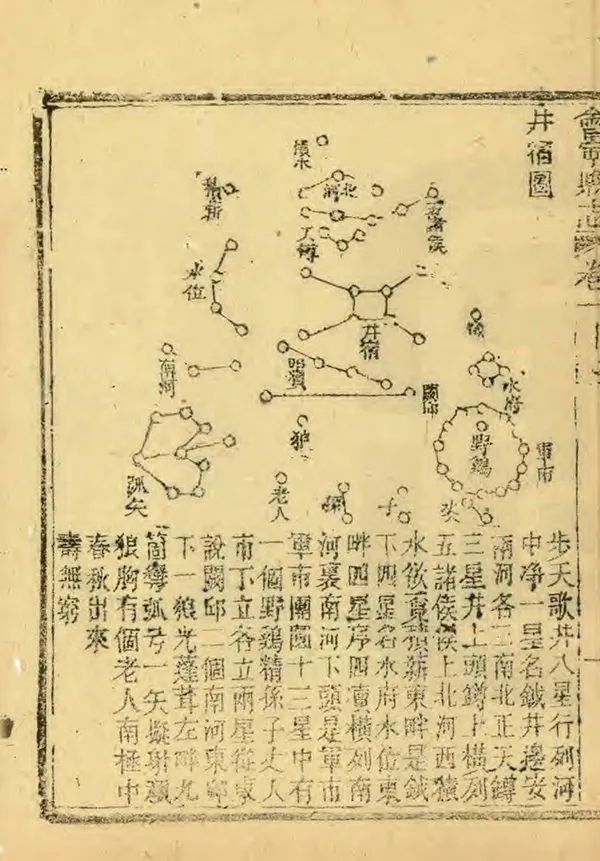 會寧縣志
卷一
井宿圖
積水
北河
積薪
五諸侯
天罇
水位
井宿
鉞
水府
南河
四瀆
闕邱
野鷄
軍市
狼
弧矢
老人
孫
子
步天歌井八星行列河
中净一星名鉞井邊安
兩河各三南北正天罇
三星井上頭罇上橫列
五諸侯侯上北河西積
水欲覓積薪東畔是鉞
下四星名水府水位東
畔四星序四瀆橫列南
河裏南河下頭是軍市
軍市團圓十三星中有
一個野鷄精孫子丈人
市下立各立兩星從東
說闕邱二個南河東邱
下一狼光蓬茸左畔九
箇彎弧弓一矢擬射頑
狼胸有個老人南極中
春秋出來
壽無窮